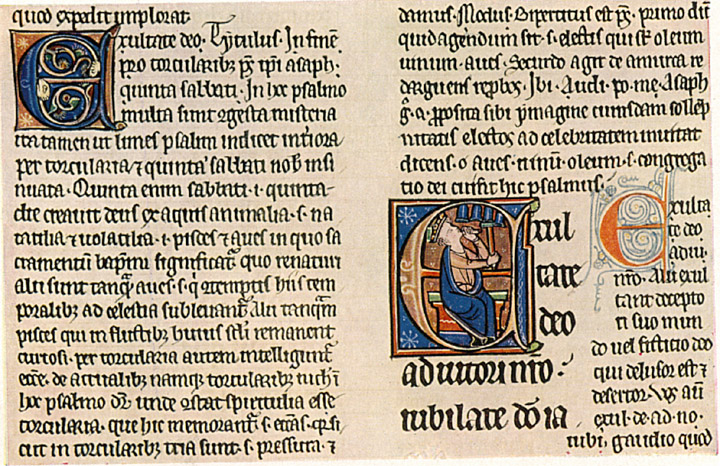 quod expedit implorat.
Exultate deo. Tytulus. In finē
pro torcularibꝫ pꝭ ipī asaph.
quinta sabbati. In hoc psalmo
multa sunt ꝯgesta misteria
ita tamen ut lunes psalmi indicet int͛iora
per torcularia ⁊ quinta sabbati nob̄ insi
nuata. Quinta enim sabbati .i. quinta
die creauit deus ex aquis animalia .s. na
tatilia ⁊ uolatilia .i. pisces ⁊ aues in quo sa
cramentū bap̄mi significat᷑ quo renatur
alii sunt tanqͣ aues .s. q̇ ꝯtemptis hiis tem
poralibꝫ ad celestia subleuant᷑. Alii tanqͣm
pisces qui in fluctibꝫ huius scl̄i remanent
curiosi. per torcularia autem intelligunt᷑
ecc̄e. de actualibꝫ namqꝫ torcularibꝫ nichī
hoc psalmo dr̄ unde ꝯstat spiritulia esse
torcularia. que hic memorant᷑ .s. ecc̄as. q̇ si
cut in torcularibꝫ tria sunt .s. pressura. ⁊
damus. Modus. Bipertitus est pꝭ. primo dīt
quid agendum sit .s. electis qui sūt oleum
uinum. aues. Secūdo agit de amurca re
darguens reꝓbos. Ibi. Audi. po. me. Asaph
g̊. a. ꝓposita sibi ẏmagine cuiusdam sollēp
nitatis electos ad celebritatem inuitat
dicens. o aues. uinū. oleum .s. congrega
tio dei cui fit hic psalmus.
Exul
tate
deo
adiutori nr̄o.
iubilate dō ia
Exulta
te deo
adiu.
nr̄o. Alii exul
tant decepto
ri suo mun
do uel ficticio deo
qui delusor est ⁊
desertor. Vos aūt
exul. de. ad. no.
iubi. gaudio quod